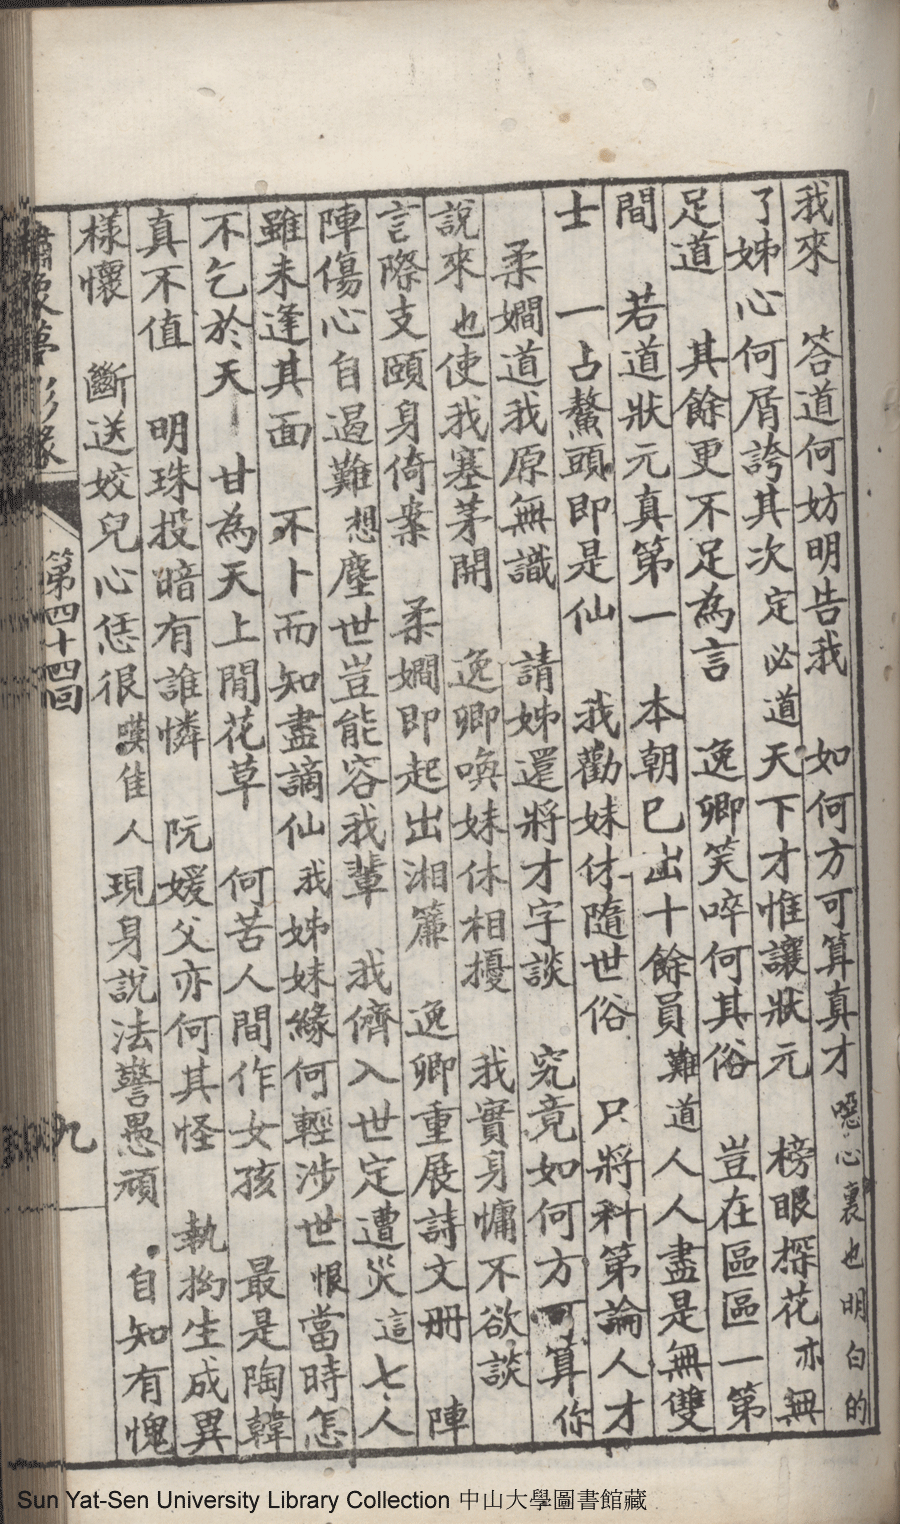 我來　答道何妨明告我　如何方可算真才　噁心裏也明白的
了姊心何屑誇其次定必道天下才惟讓狀元　榜眼探花亦無
足道　其餘更不足為言　逸卿笑啐何其俗　豈在區區一第
間　若道狀元真第一　本朝已出十餘員　難道人人盡是無雙
士　一占鰲頭即是仙　我勸妹休隨世俗　只將科第論人才
柔嫺道我原無識　請姊還將才字談　究竟如何方可算　你
說來也使我塞茅開　逸卿喚妹休相擾　我實身慵不欲談
言際支頤身倚案　柔嫺即起出湘簾　逸卿重展詩文冊　陣
陣傷心自遏難　想塵世豈能容我輩　我儕入世定遭災　這七人
雖未逢其面　不卜而知盡謫仙　我姊妹緣何輕涉世　恨當時怎
不乞於天　甘為天上閒花草　何苦人間作女孩　最是陶韓
真不值　明珠投暗有誰憐　阮媛父亦何其怪　執拗生成異
樣懷　斷送姣兒心恁很　嘆佳人現身說法警愚頑　自知有愧
夢影緣
第四十四回
九
Sun Yat-Sen University Library Collection 中山大學圖書館藏